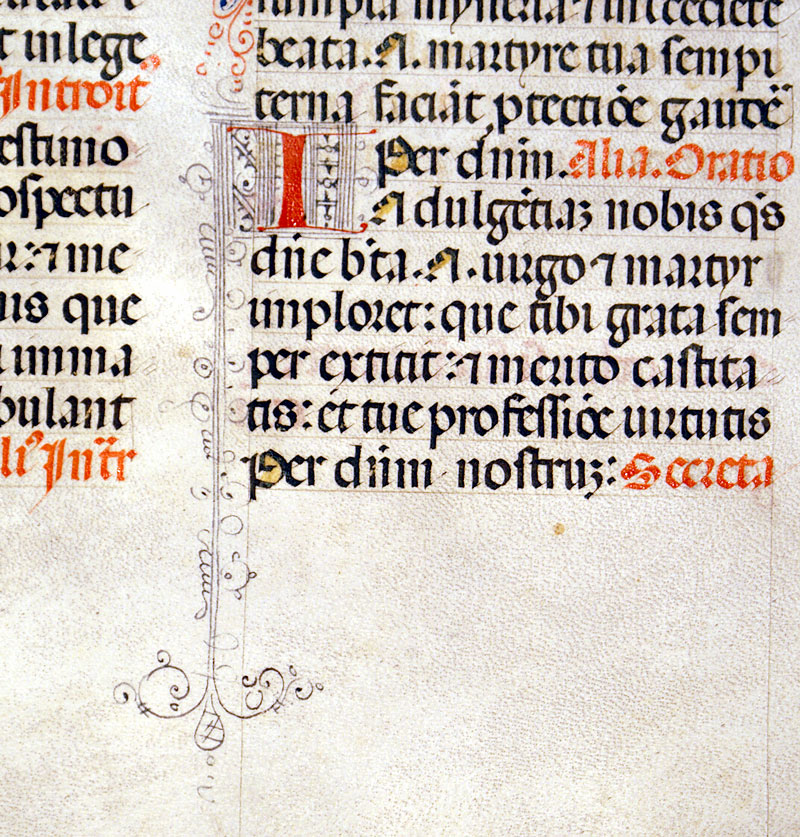 t in lege
Introit᷒
estimo
ospectu
ur: ⁊ me
us que
imma
bulant
sumpta mysteria ⁊ intercedete
beata .A. martyre tua sempi
terna faciāt ꝓtectiōe gaudē
Per dn̄m. Alia. Oratio
Indulgētiaꝫ nobis q̄s
dn̄e b̄ta .A. uirgo ⁊ martyr
imploret: que tibi grata sem
per extitit: ⁊ merito castita
tis: et tue professiōe uirtutis
Per dn̄m nostruꝫ: Secreta